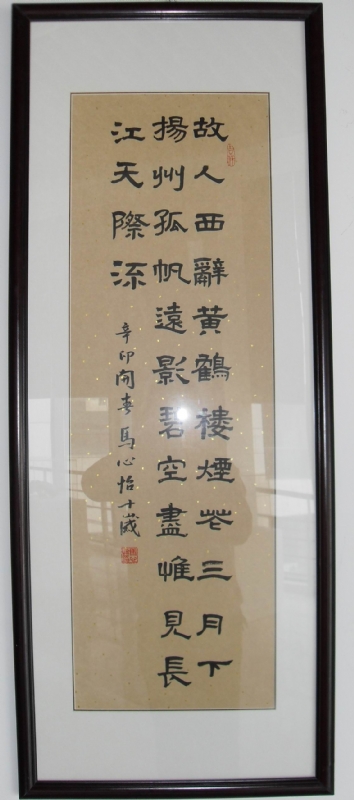 故人西辭黄鶴樓煙花三月下
揚州孤帆遠影碧空盡惟見長
江天際流
辛卯開春馬心怡十歲